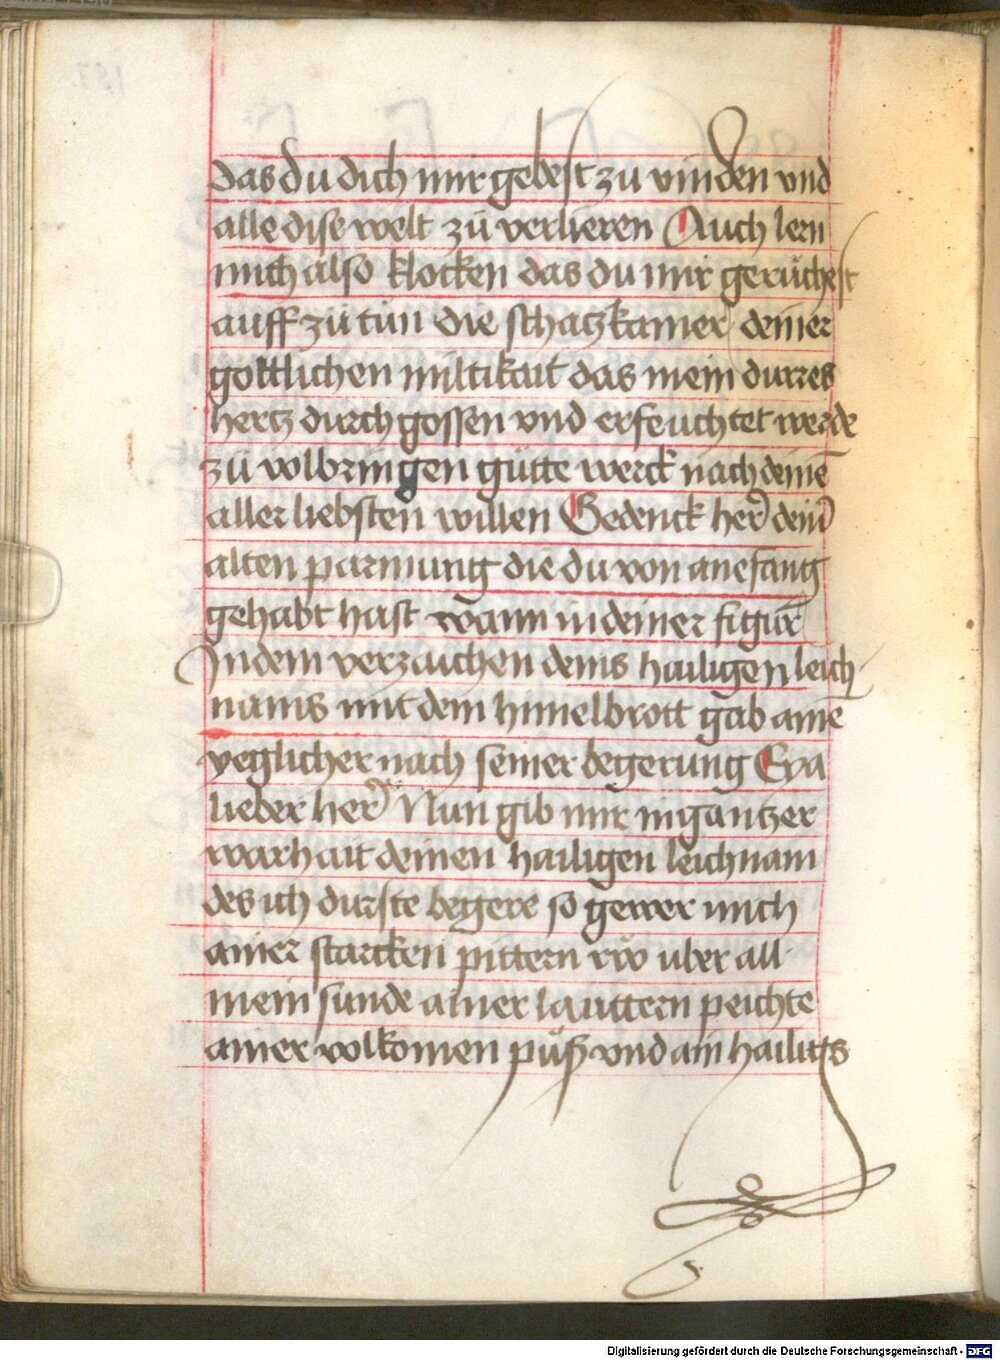 das du dich mir gebest zu vinden vnd
alle dise welt zů verlieren Auch lern
mich also klocken das du mir gerůchest
auff zů tůn die schaczkamer deiner
gottlichen miltikait das mein durres
hertz durch gossen vnd erfeuchtet werde
zů volbringen gůtte werck nach deinē
aller liebsten willen Gedenck her dein
alten parmung die du von anefang
gehabt hast wann in deiner figur
In dem verzaichen deins hailigen leich
nams mit dem himelbrott gab aine
yeglicher nach seiner begerung Eya
lieber her Nun gib mir in gantzer
warhait deinen hailigen leichnam
des ich durste begere so gewer mich
ainer starcken pittern rw vber all
mein sunde ainer lauttern peichte
ainer volkomen půß vnd ain hailigs
Digitalisierung gefördert durch die Deutsche Forschungsgemeinschaft - DFG